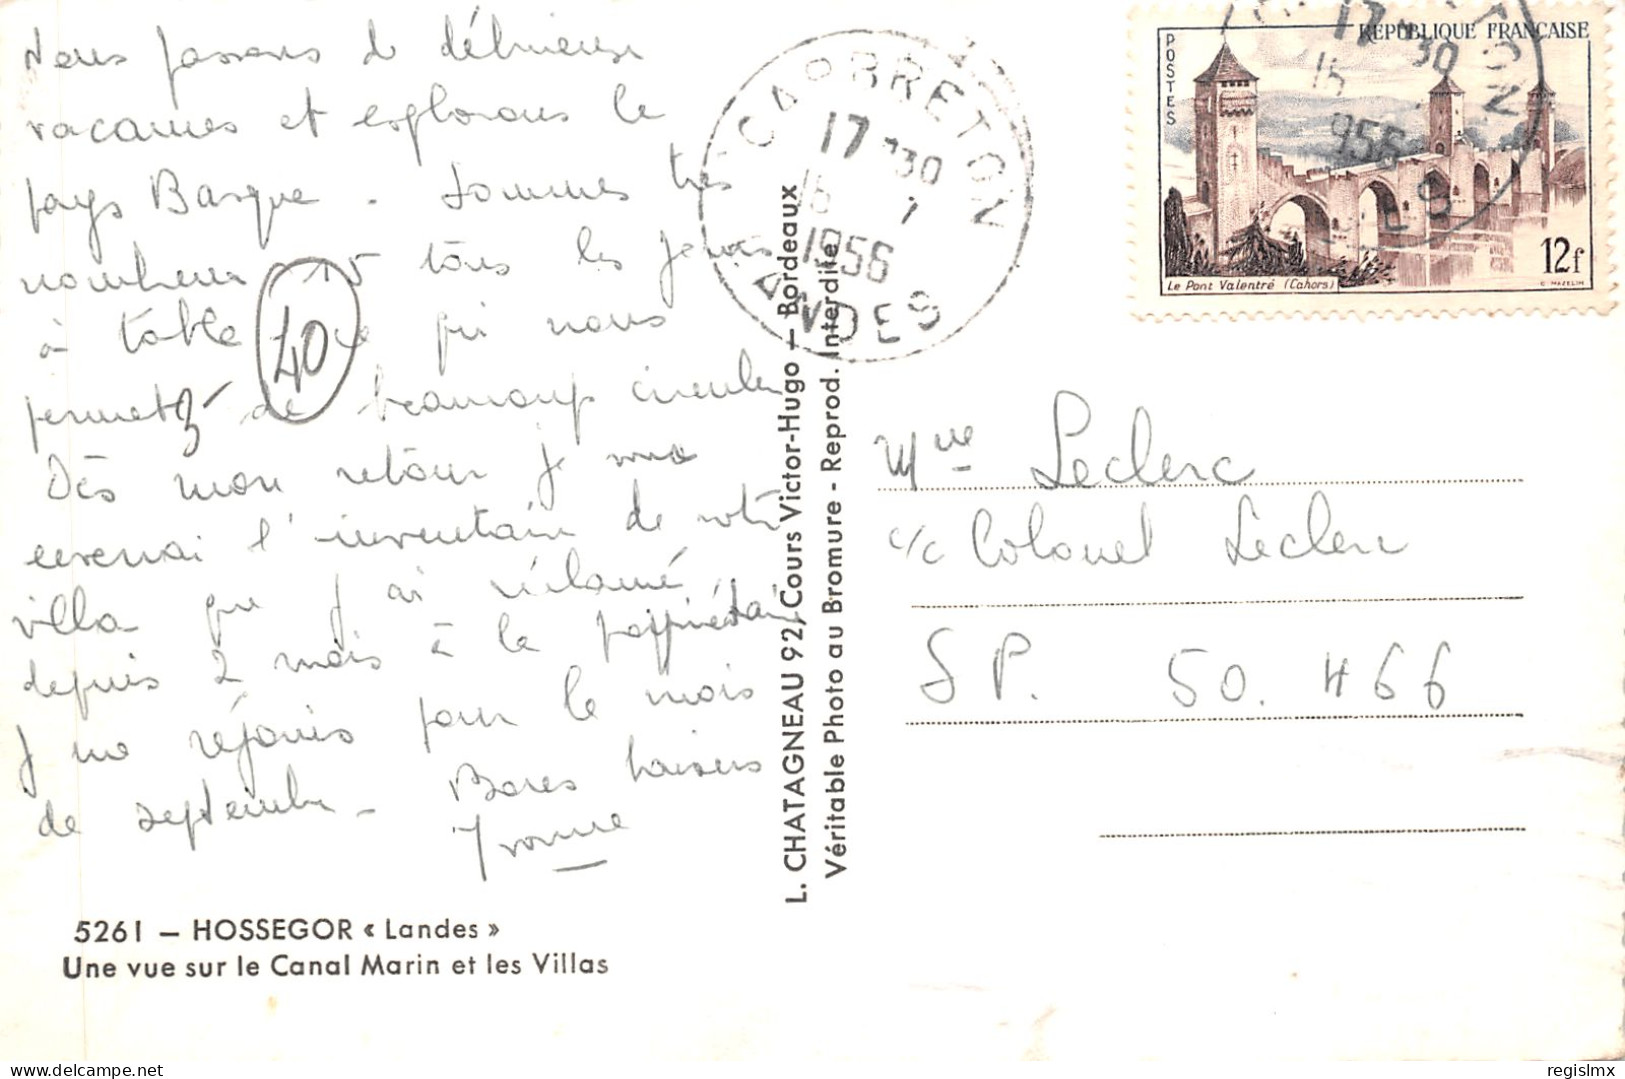 Nous passons de délicieuses
vacances et explorons le
pays Basque. Sommes très
nombreux 15 tous les jours
à table ce qui nous
permet de beaucoup circuler
40
Dès mon retour je vous
enverrai l'inventaire de votre
villa que j'ai réclamé
depuis 2 mois à la propriétaire
Je me réjouis pour le mois
de septembre - Bons baisers
Yvonne
5261 — HOSSEGOR « Landes »
Une vue sur le Canal Marin et les Villas
L. CHATAGNEAU 92, Cours Victor-Hugo — Bordeaux
Véritable Photo au Bromure - Reprod. Interdite
CAPBRETON
17 30
16 7
1956
LANDES
POSTES
REPUBLIQUE FRANÇAISE
12f
Le Pont Valentré (Cahors)
C. MAZELIN
Mme Leclerc
c/c Colonel Leclerc
SP. 50.466
regislmx